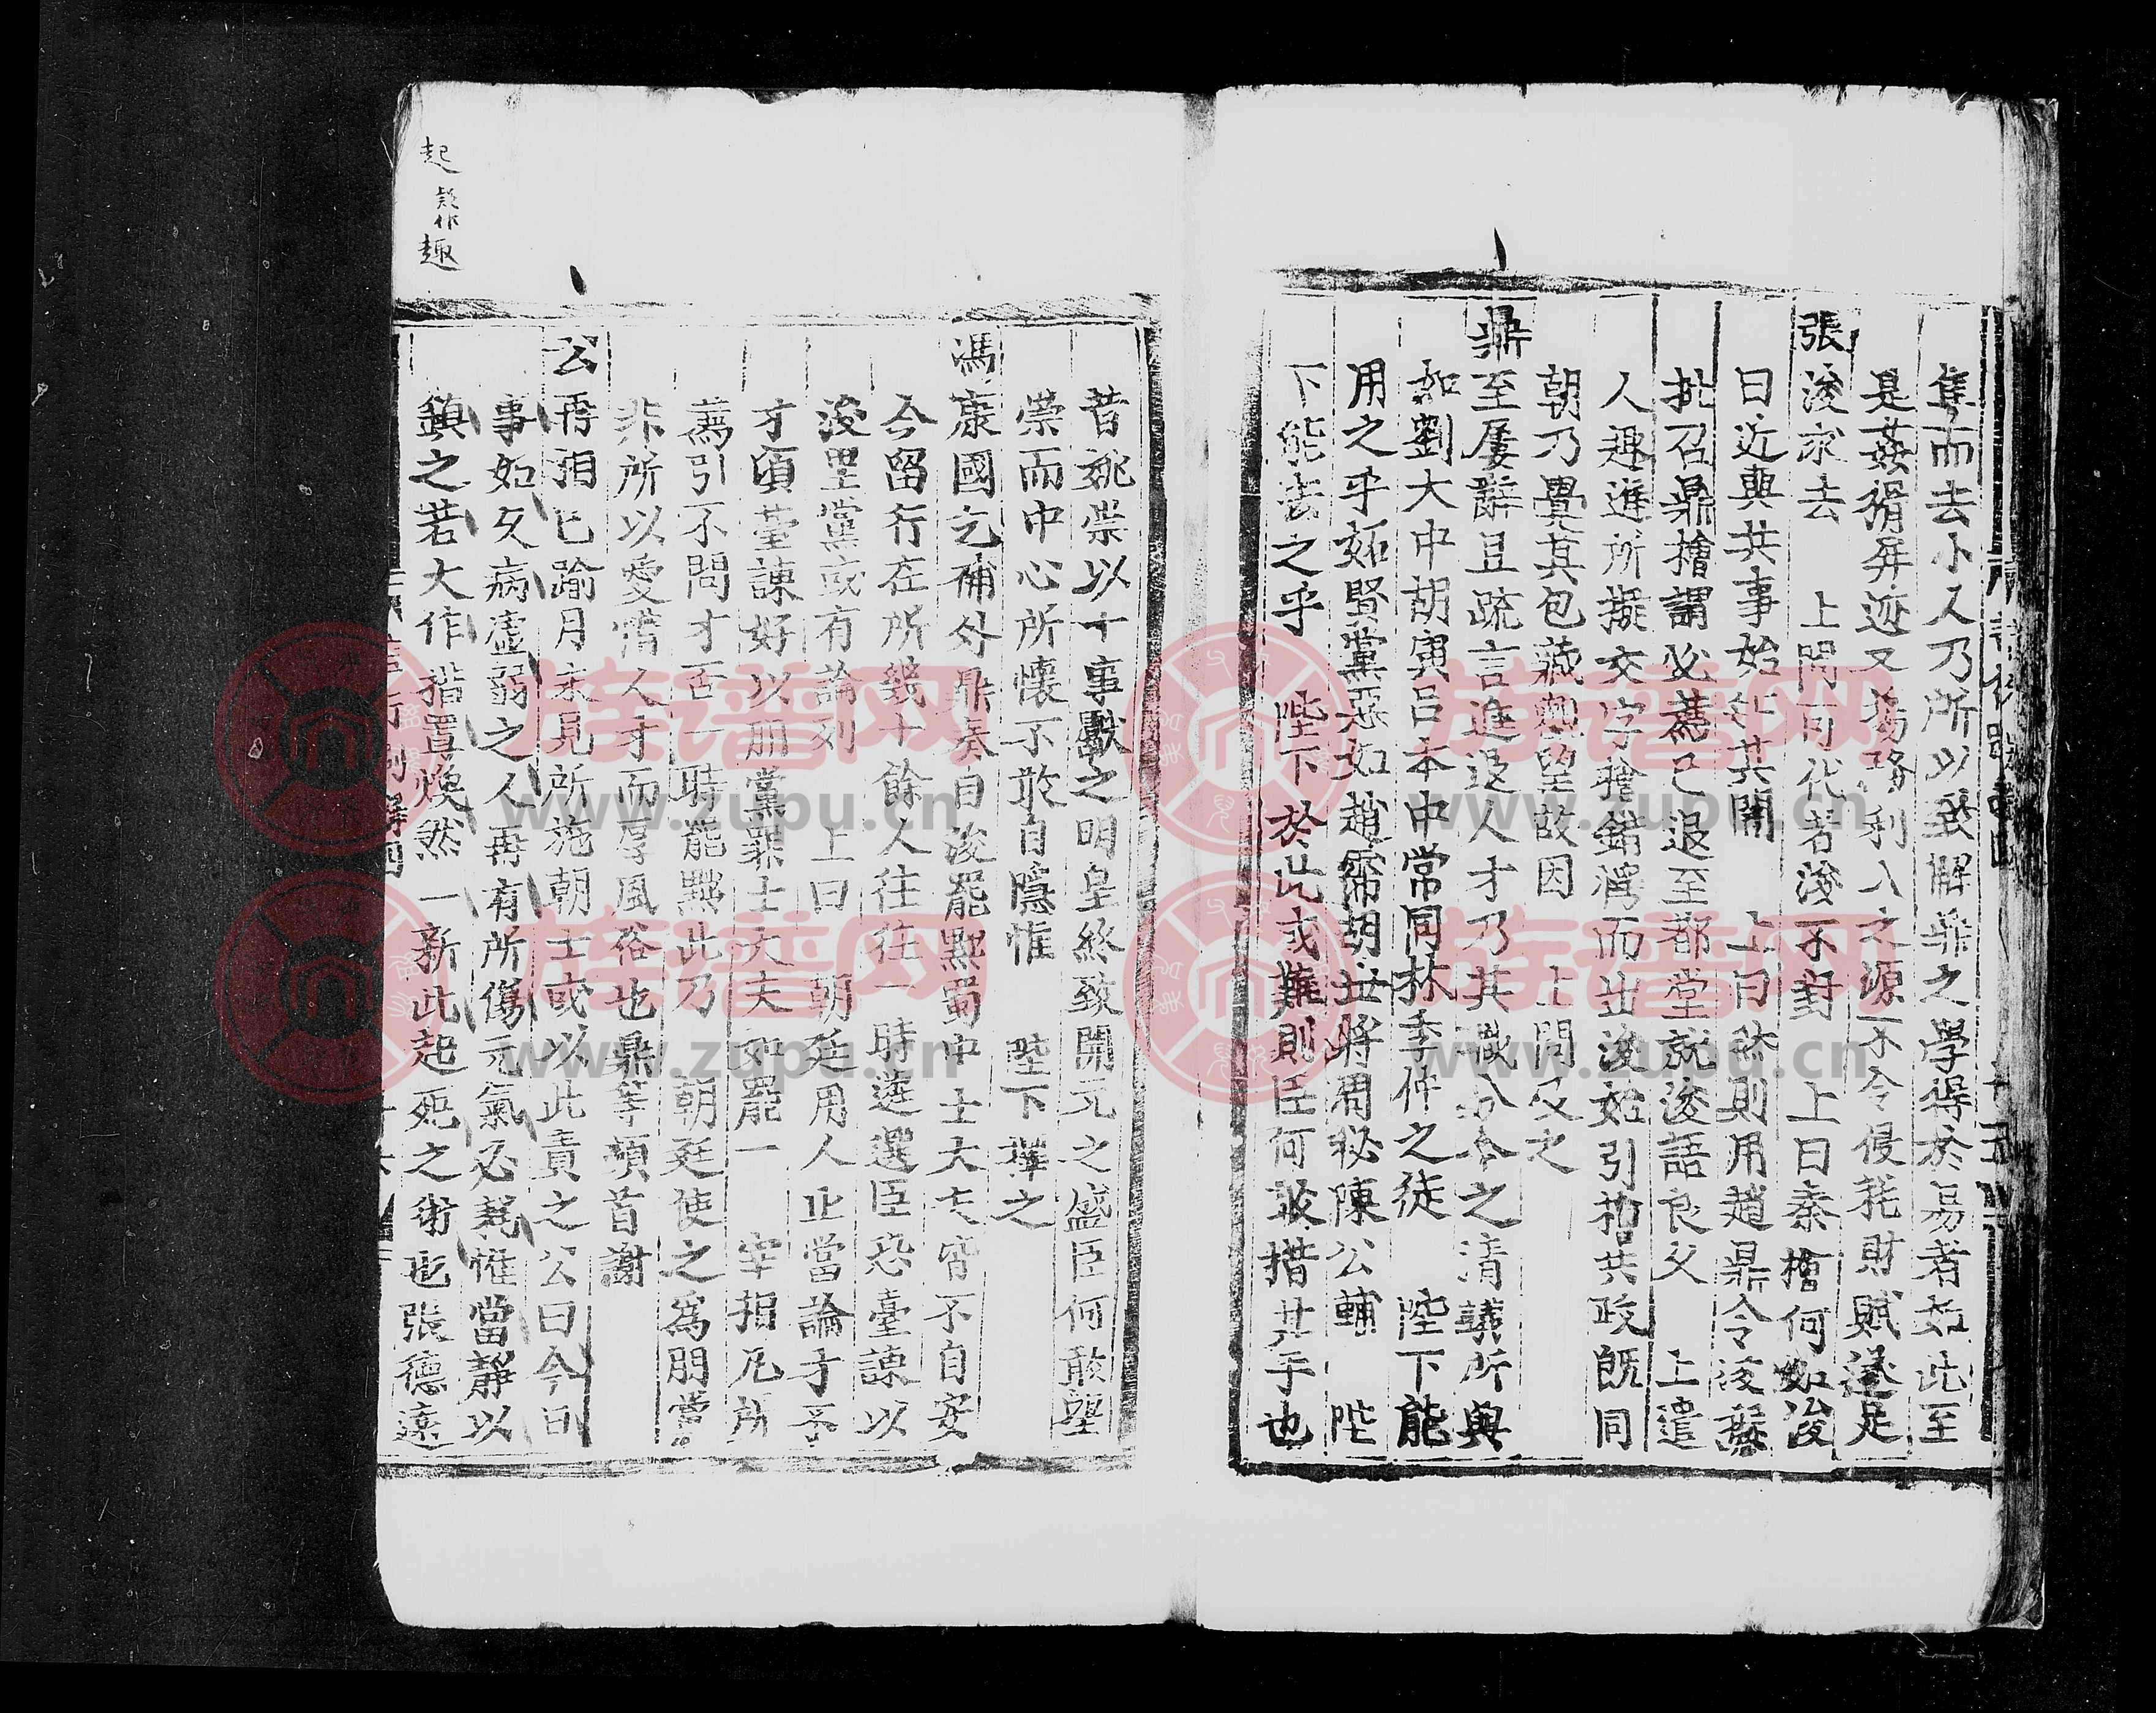 隼而去小人乃所以致解悖之學得於易者如此至
是姦猾屏迹又獨務利八之源不令侵耗財賦遂足
張浚求去　上問可代者浚不對　上曰秦檜何如浚
曰近與共事始知其闇　上曰然則用趙鼎令浚擬
批召鼎檜謂必薦己退至都堂就浚語良久　上遣
人趣進所擬文字檜錯愕而出浚始引檜共政既同
朝乃覺其包藏顧望故因　上問及之
鼎至屢辭且疏言進退人才乃其職分今之清議所與
如劉大中胡寅呂本中常同林季仲之徒　陛下能
用之乎妬賢黨惡如趙霈胡世將周秘陳公輔　陛
下能去之乎　陛下於此或難則臣何敢措其手也
昔姚崇以十事獻之明皇終致開元之盛臣何敢望
崇而中心所懷不敢自隱惟　陛下擇之
馮康國乞補外鼎奏曰浚罷黜蜀中士大夫皆不自安
今留行在所幾十餘人往往一時遴選臣恐臺諫以
浚里黨或有論列　上曰　朝廷用人止當論才不
才頃臺諫好以朋黨罪士大夫如罷一　宰相凡所
薦引不問才否一時能黜此乃　朝廷使之為朋黨
非所以愛惜人才而厚風俗也鼎等頓首謝
公再相已踰月未見所施朝士或以此責之公曰今日
事如久病虛弱之人再有所傷元氣必耗惟當靜以
鎮之若大作措置煥然一新此起死之術也張德遠
起疑作趣
族谱网
www.zupu.cn
族谱网
www.zupu.cn
族谱网
www.zupu.cn
族谱网
www.zupu.cn